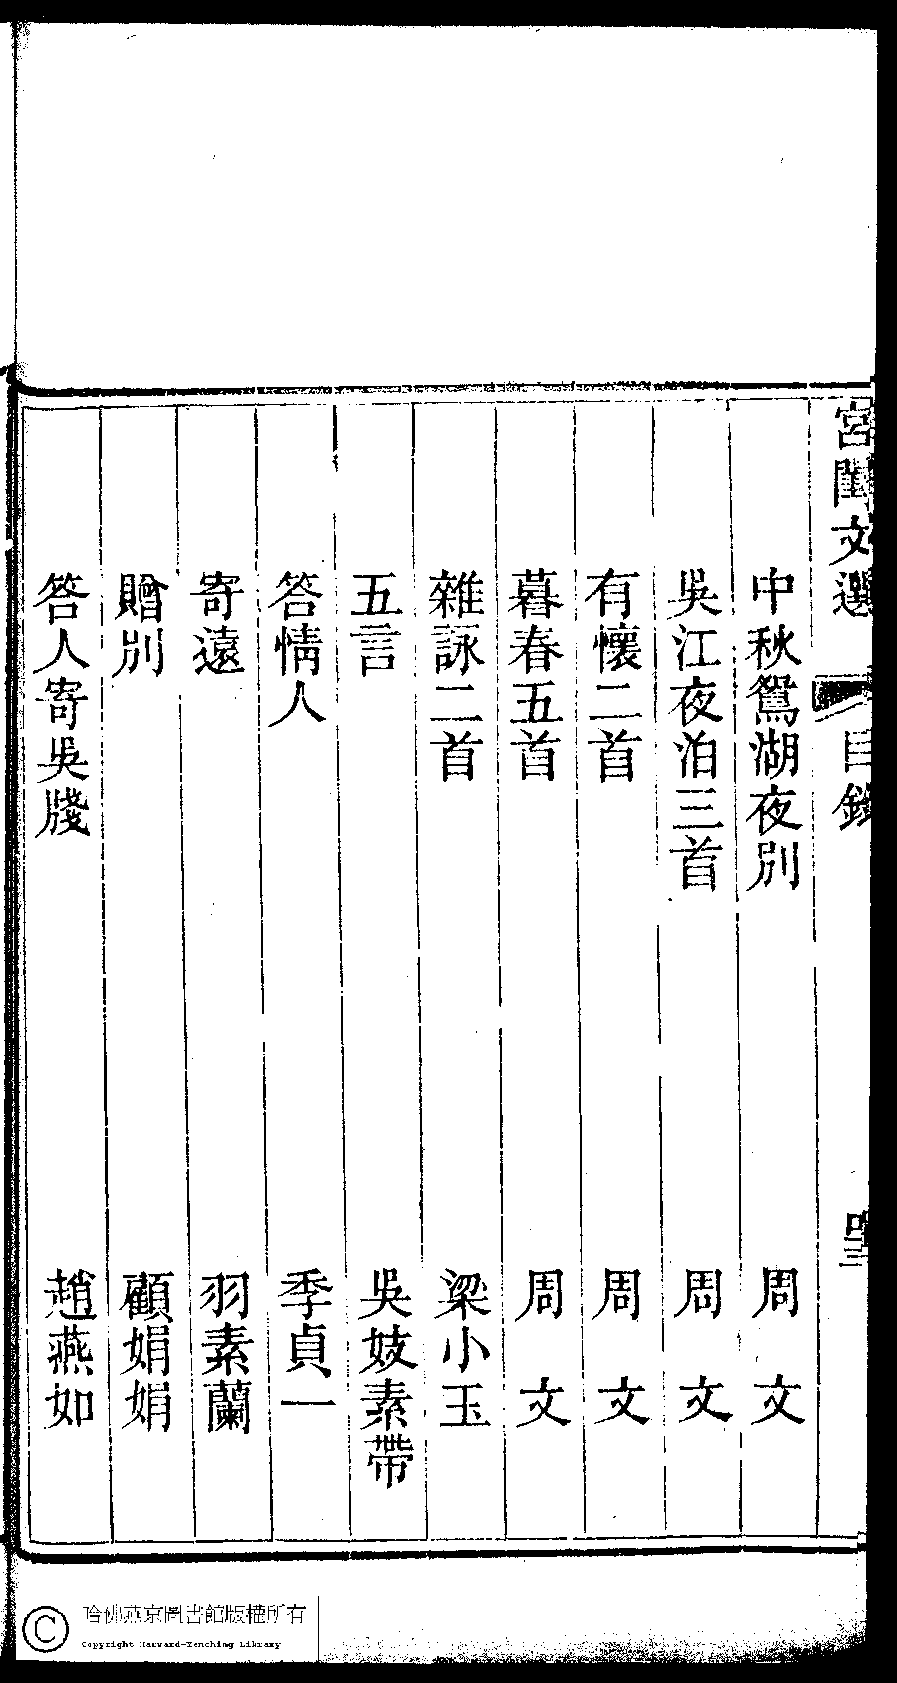 宮閨文選 目錄
中秋鴛湖夜別 周文
吳江夜泊三首 周文
有懷二首 周文
暮春五首 周文
雜詠二首 梁小玉
五言 吳妓素帶
答情人 季貞一
寄遠 羽素蘭
贈別 顧娟娟
答人寄吳牋 趙燕如
哈佛燕京圖書館版權所有
Copyright Harvard-Yenching Library